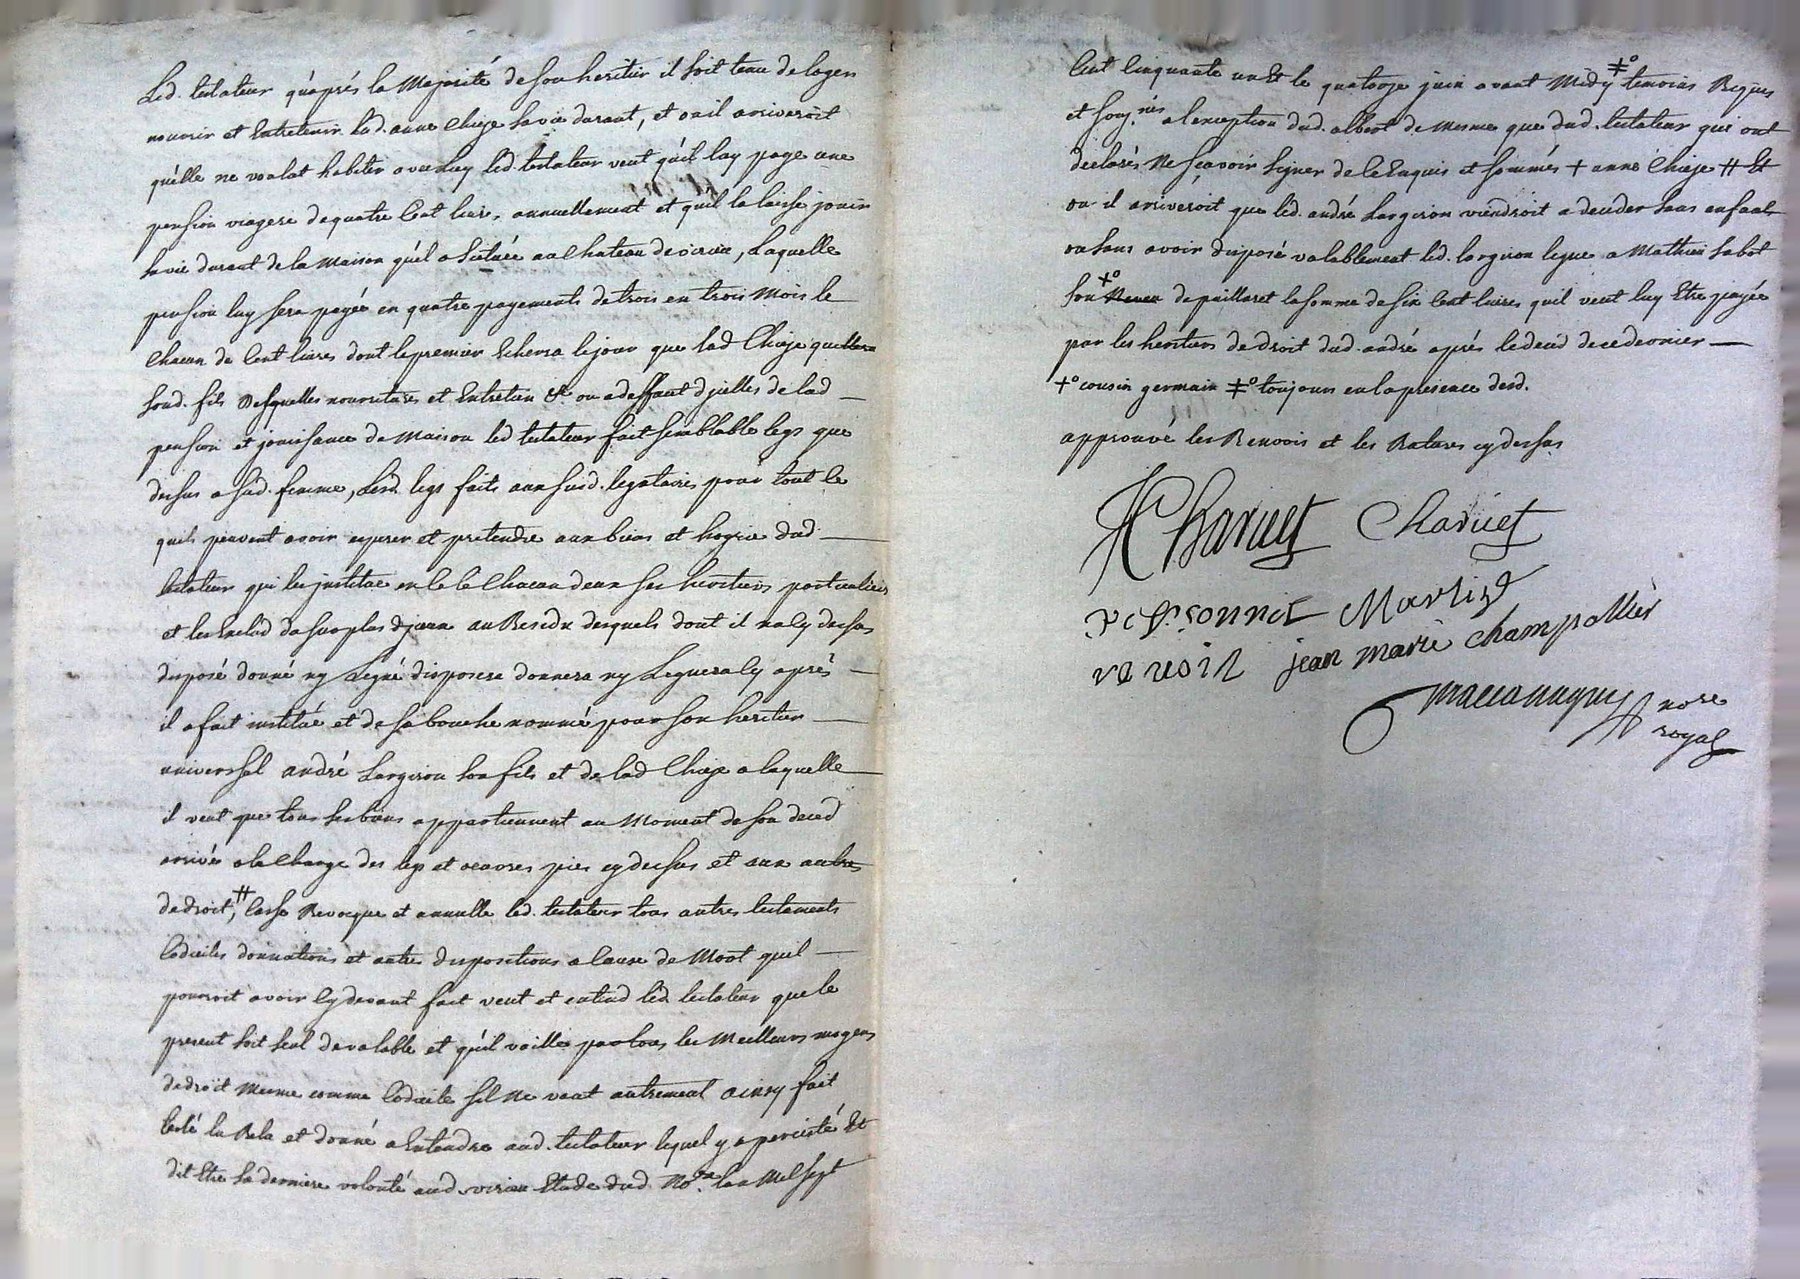 Led. testateur qu'aprés la Majorité de son heritier il soit tenu de loger
nourrir et Entretenir lad. anne Chieze sa vie durant, et ou il arriveroit
qu'elle ne voulut habiter avec luy led. testateur veut qu'il luy paye une
pension viagere de quatre Cent livres annuellement et quil la laisse jouir
sa vie durant de la maison qu'il a scituée au Chateau de virieu, Laquelle
pension luy sera payée en quatre payements de trois en trois Mois le
Chacun de Cent livres dont le premier Echerra le jour que lad Chieze quittera
sond. fils Desquelles nourriture et Entretien & ou a deffaut d'jcelles de lad
pension et jouissance de Maison led testateur fait semblable legs que
dessus a sad. femme, Lesd. legs faits aux susd. legataires pour tout ce
quils peuvent avoir esperer et pretendre aux biens et hoyrie dud
testateur qui les jnstitue en ce le Chacun deux ses heritiers particuliers
et les Exclud de son plus d'jceux au Residu desquels dont il na Cy dessus
disposé donné ny Legué disposera donnera ny Leguera Cy aprés
il a fait institué et de sa bouche nommé pour son heritier
universsel andré Largiron son fils et de lad Chieze a laquelle
il veut que tous ses biens appartiennent au Moment de son deced
arrivés a la Charge des legs et oeuvres pies cy dessus et aux autres
de droit, ++ Casse Revocque et annulle led. testateur tous autres testaments
Codiciles donnations et autres dispositions a Cause de Mort quil
pourroit avoir Cy devant fait veut et entend led. testateur que le
present soit seul de valable et qu'il vaille par tous les Meilleurs moyens
de droit mesme comme Codicile sil ne vaut autrement ainsy fait
testé lu Relu et donné a Entendre aud. testateur lequel y a percisté Et
dit Etre sa derniere volonté aud. virieu Etude dud No.re lan Mil sept
Cent Cinquante un Et le quatorze juin avant Midy ‡° temoins Requis
et soug.nés a l'exception dud. albert de mesme que dud. testateur qui ont
declarés Ne sçavoir signer de ce Enquis et sommés + anne Chieze ++ Et
ou il arriveroit que led. andré Largiron viendroit a deceder sans enfants
ou sans avoir disposé valablement led. largiron legue a Mathieu Sabot
son +° de paillaret la somme de six Cent livres quil veut luy Etre payée
par les heritiers de droit dud. andré aprés le deced de ce dernier
+° cousin germain ‡° toujours en la presence desd.
approuvé les Renvois et les Ratures cy dessus
Charuet Charuet
Martin
jean marie champollier
no.re
royal